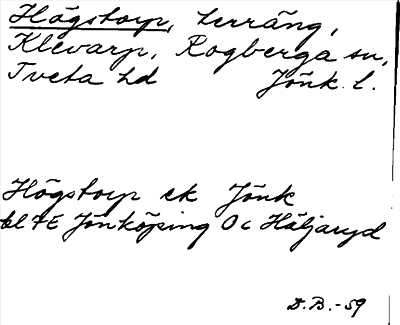 Högstorp, terräng,
Klevarp, Rogberga sn,
Tveta hd Jönk. l.
Högstorp ek Jönk
bl 7E Jönköping Oc Häljaryd
D.B.-59